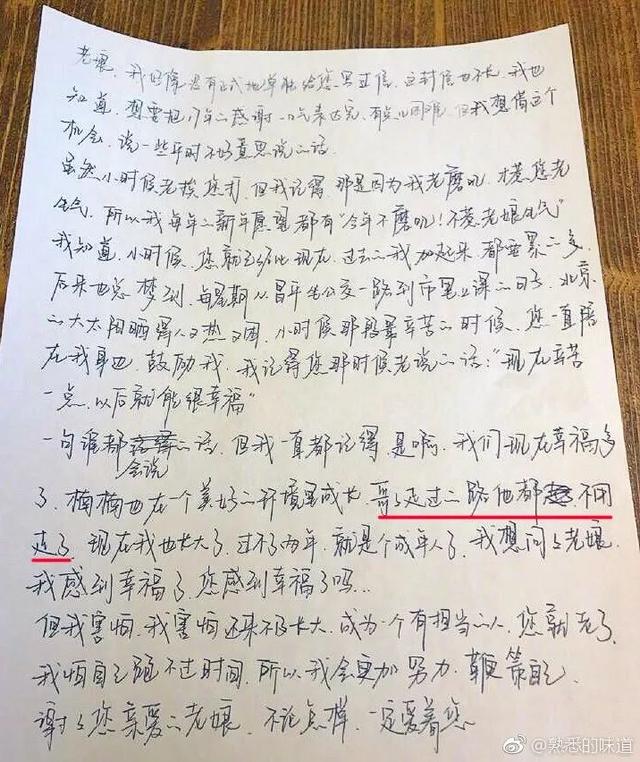 老娘，我好像没有正式地单独给您写过信，这封信也不长，我也
知道，想要把17年的感谢一口气表达完，有点儿困难，但我想借这个
机会，说一些平时不好意思说的话。
虽然小时候老挨您打，但我记得，那是因为我老磨叽，才惹您老
生气，所以我每年的新年愿望都有“今年不磨叽！不惹老娘生气”
我知道，小时候，您就已经比现在、过去的我加起来都要累的多，
后来也总梦到，每星期从昌平坐公交一路到市里上课的日子，北京
的大太阳晒得人又热又困，小时候那段最辛苦的时候，您一直陪
在我身边，鼓励我，我记得您那时候老说的话：“现在辛苦
一点，以后就能很幸福”
一句谁都会说的话，但我一直都记得，是啊，我们现在幸福多
了，楠楠也在一个美好的环境里成长，哥哥走过的路他都不用
走了，现在我也长大了，过不了两年，就是个成年人了，我想问问老娘，
我感到幸福了，您感到幸福了吗…
但我害怕，我害怕还来不及长大，成为一个有担当的人，您就老了，
我怕自己跑不过时间，所以我会更加努力，鞭策自己，
谢谢您亲爱的老娘，不论怎样，一定爱着您
@熟悉的味道